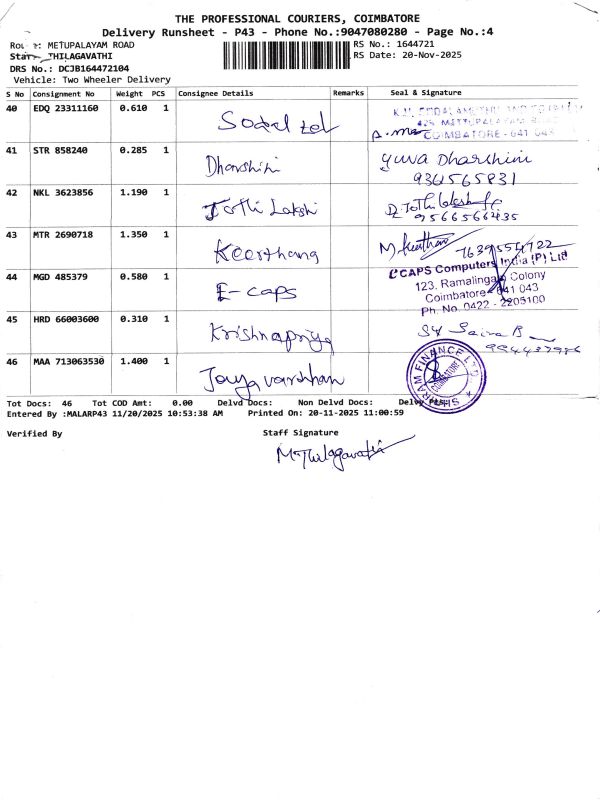 THE PROFESSIONAL COURIERS, COIMBATORE
Delivery Runsheet - P43 - Phone No.:9047080280 - Page No.:4
METUPALAYAM ROAD
RS No.: 1644721
THILAGAVATHI
RS Date: 20-Nov-2025
DRS No.: DCJB164472104
Vehicle: Two Wheeler Delivery
S No Consignment No Weight PCS Consignee Details Remarks Seal & Signature
40 EDQ 23311160 0.610 1
COIMBATORE - 641
41 STR 858240 0.285 1 Dharshini Yuva Dharshini
42 NKL 3623856 1.190 1 Jothi Lakshi
9566566435
43 MTR 2690718 1.350 1 Keerthana
7639554722
44 MGD 485379 0.580 1 E-caps
CAPS Computers India (P) Ltd
123, Ramalingam Colony
Coimbatore - 641 043
Ph. No. 0422 - 2205100
45 HRD 66003600 0.310 1 Krishnapriya
46 MAA 713063530 1.400 1 Jaya vardhan
SHRIRAM FINANCE LTD
COIMBATORE
Tot Docs: 46 Tot COD Amt: 0.00 Delvd Docs: Non Delvd Docs:
Entered By :MALARP43 11/20/2025 10:53:38 AM Printed On: 20-11-2025 11:00:59
Verified By Staff Signature
M.Thilagavathi